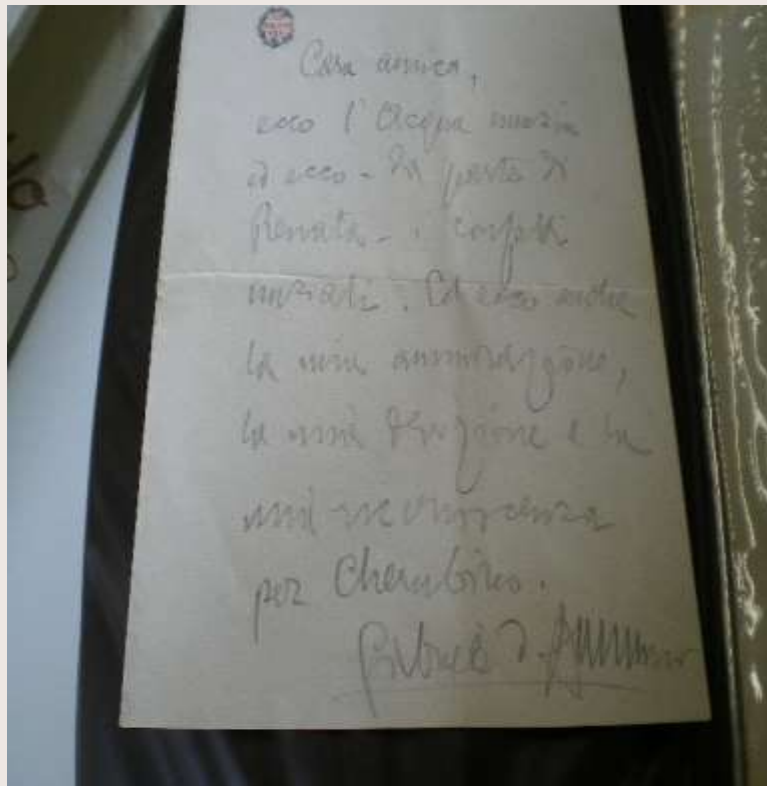 Cara amica,
ecco l'Acqua nunzia
ed ecco - da parte di
Renata - i confetti
nuziali. Ed ecco anche
la mia ammirazione,
la mia devozione e la
mia riconoscenza
per Cherubino.
Gabriele d'Annunzio